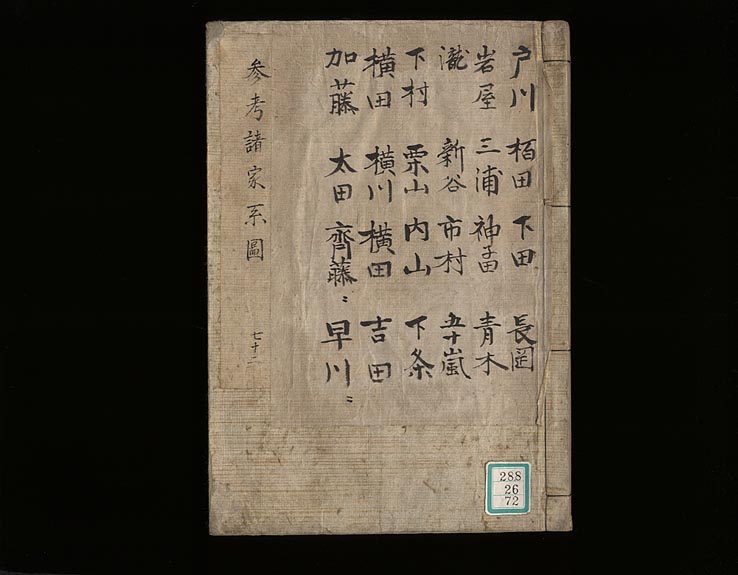 戸川 栢田 下田 長岡
岩屋 三浦 神子田 青木
瀧 新谷 市村 五十嵐
下村 栗山 内山 下条
横田 横川 横田 吉田
加藤 太田 齊藤〻 早川〻
参考諸家系圖 七十二
288
26
72